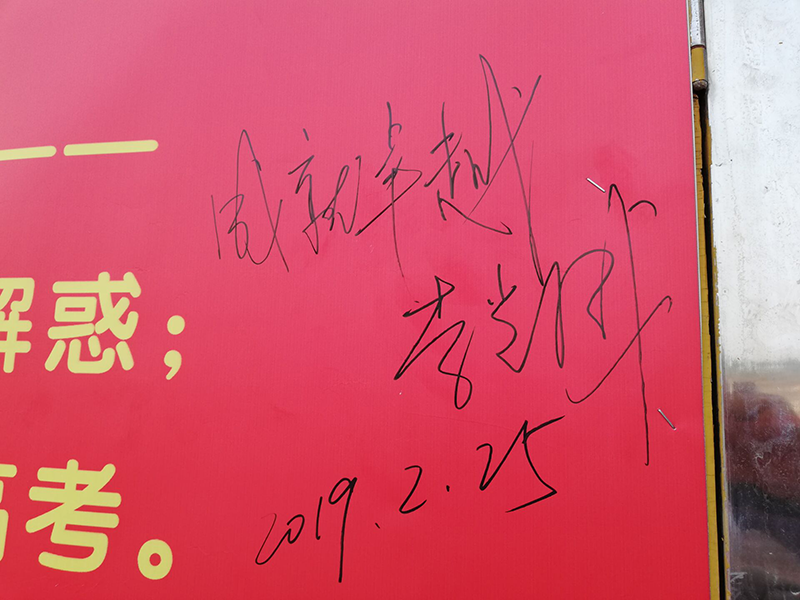 ——
解惑；
高考。
成就卓越
李光辉
2019.2.25